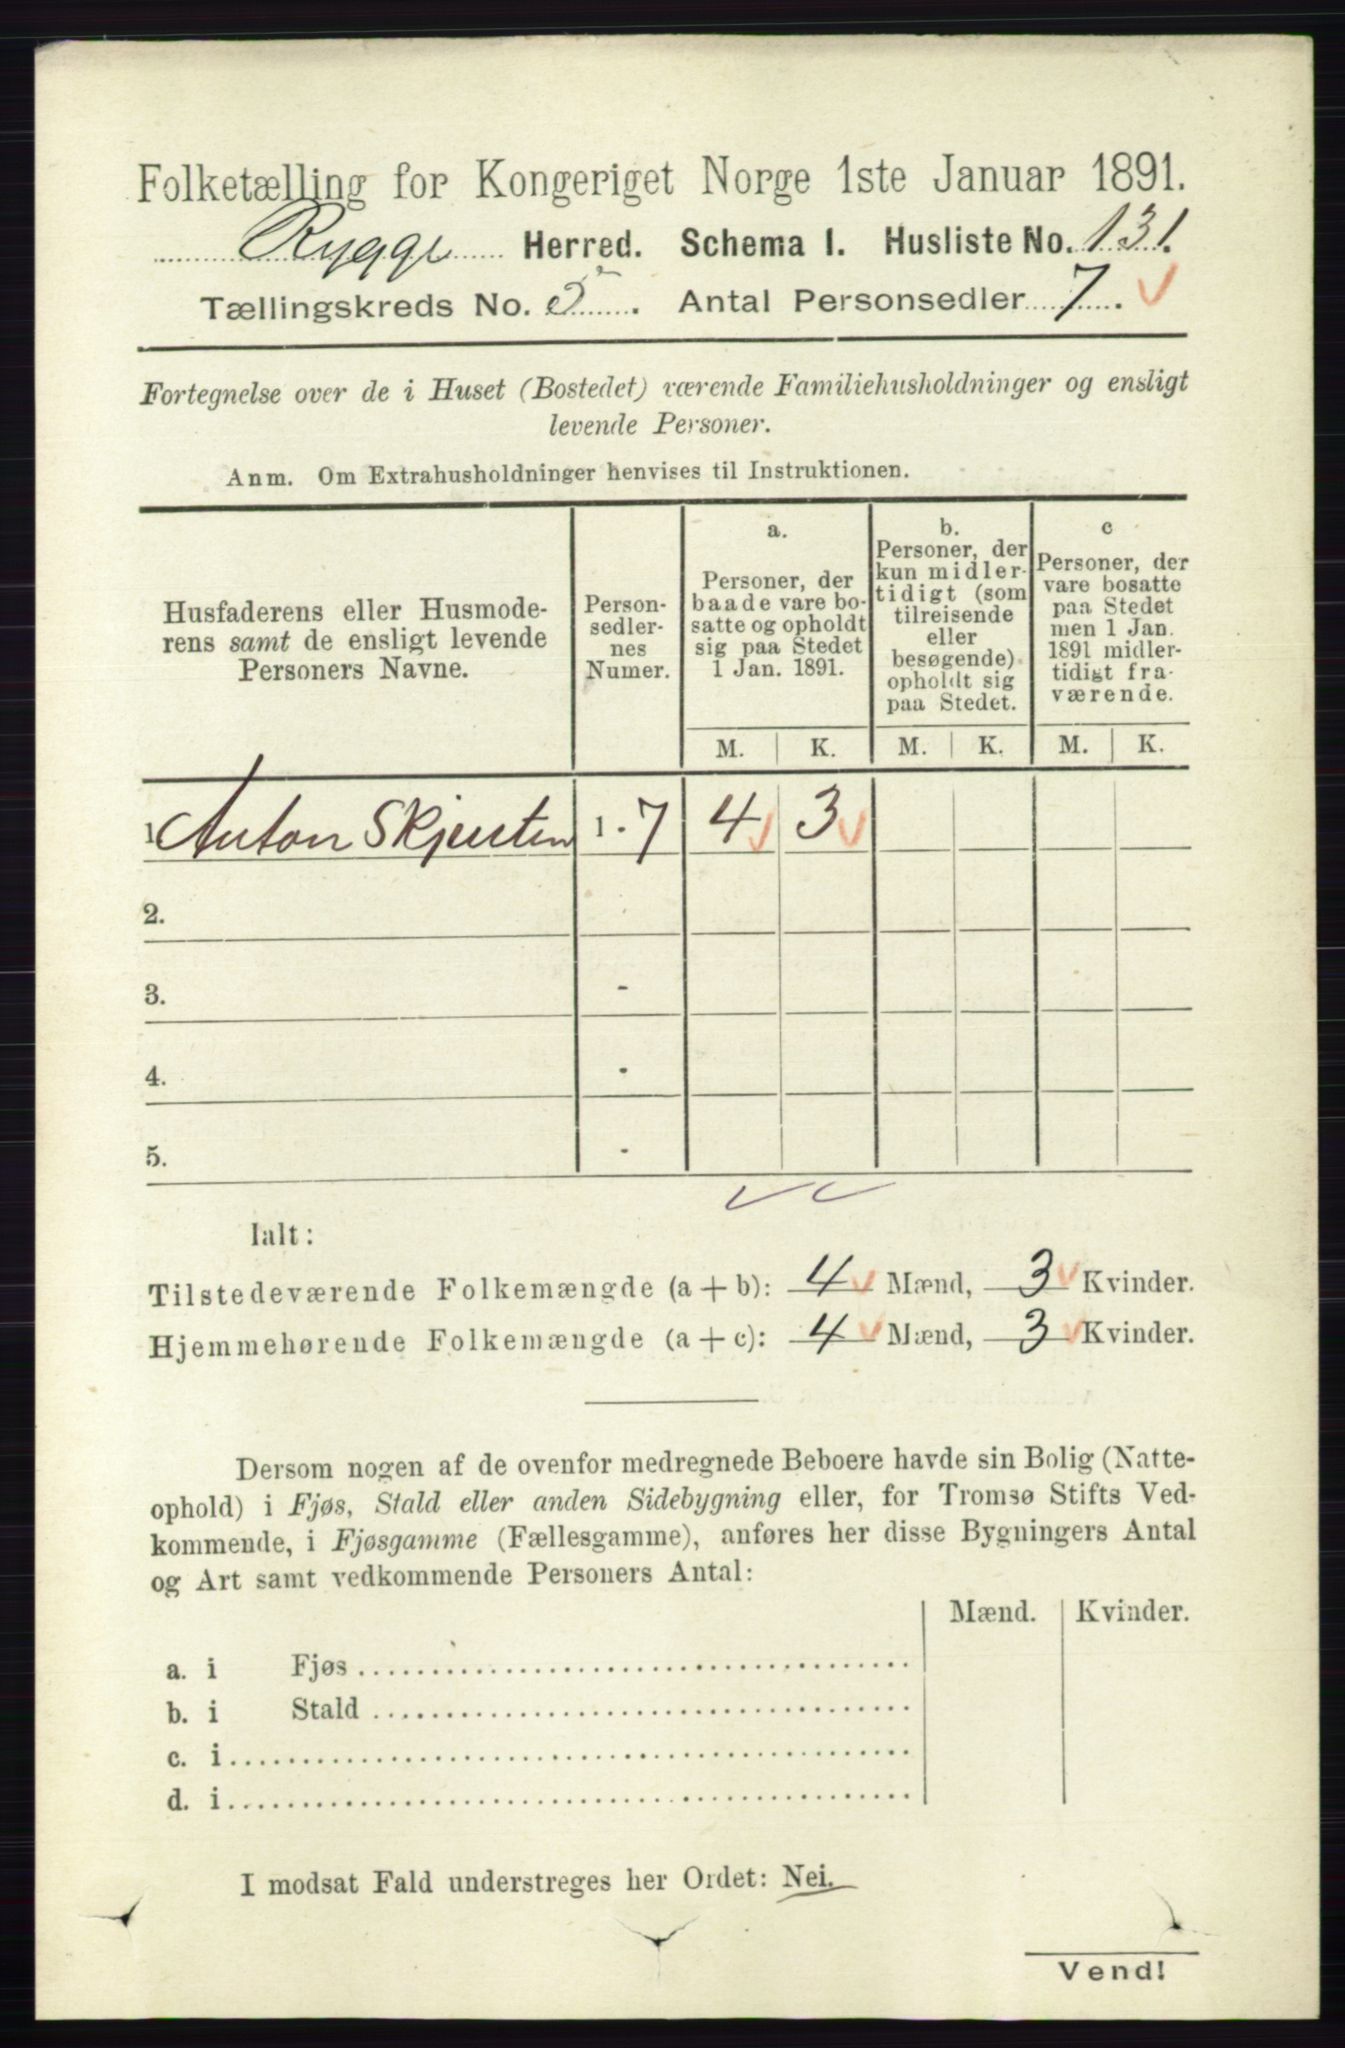 Folketælling for Kongeriget Norge 1ste Januar 1891.
Rygge Herred. Schema I. Husliste No. 131.
Tællingskreds No. 5. Antal Personsedler 7.
Fortegnelse over de i Huset (Bostedet) værende Familiehusholdninger og ensligt
levende Personer.
Anm. Om Extrahusholdninger henvises til Instruktionen.
Husfaderens eller Husmode-
rens samt de ensligt levende
Personers Navne.
Person-
sedler-
nes
Numer.
a.
Personer, der
baade vare bo-
satte og opholdt
sig paa Stedet
1 Jan. 1891.
b.
Personer, der
kun midler-
tidigt (som
tilreisende
eller
besøgende)
opholdt sig
paa Stedet.
c
Personer, der
vare bosatte
paa Stedet
men 1 Jan.
1891 midler-
tidigt fra-
værende.
M. K. M. K. M. K.
1 Anton 1 - 7 4 3
2.
3. -
4. -
5. -
Ialt:
Tilstedeværende Folkemængde (a + b): 4 Mænd, 3 Kvinder.
Hjemmehørende Folkemængde (a + c): 4 Mænd, 3 Kvinder.
Dersom nogen af de ovenfor medregnede Beboere havde sin Bolig (Natte-
ophold) i Fjøs, Stald eller anden Sidebygning eller, for Tromsø Stifts Ved-
kommende, i Fjøsgamme (Fællesgamme), anføres her disse Bygningers Antal
og Art samt vedkommende Personers Antal:
Mænd. Kvinder.
a. i Fjøs
b. i Stald
c. i
d. i
I modsat Fald understreges her Ordet: Nei.
Vend!